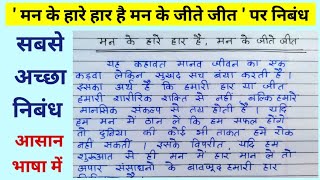 ' मन के हारे हार है मन के जीते जीत ' पर निबंध
सबसे
अच्छा
निबंध
आसान
भाषा में
मन के हारे हार है, मन के जीते जीत
यह कहावत मानव जीवन का एक
कड़वा लेकिन सुखद सच बयां करती है।
इसका अर्थ है कि हमारी हार या जीत
हमारी शारीरिक शक्ति से नहीं, बल्कि हमारे
मानसिक संकल्प से तय होती है। यदि
हम मन में ठान ले कि हम सफल होंगे
तो दुनिया की कोई भी ताकत हमें रोक
नहीं सकती। इसके विपरीत, यदि हम
शुरुआत में ही मन में हार मान लें तो
अपार संसाधनों के बावजूद हमारी हार